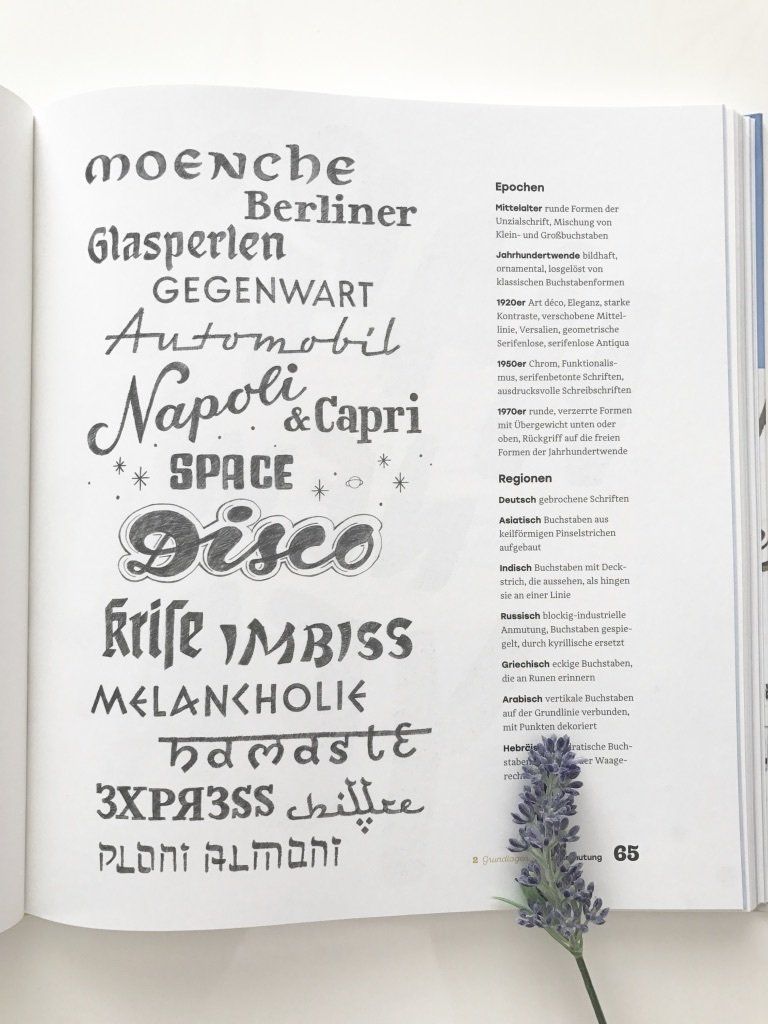 MOENCHE
Berliner
Glasperlen
GEGENWART
Automobil
Napoli
& Capri
SPACE
Disco
Kriſe IMBISS
MELANCHOLIE
namaste
ЗXPЯЗSS chillee
PLONI ALMONI
Epochen
Mittelalter runde Formen der
Unzialschrift, Mischung von
Klein- und Großbuchstaben
Jahrhundertwende bildhaft,
ornamental, losgelöst von
klassischen Buchstabenformen
1920er Art déco, Eleganz, starke
Kontraste, verschobene Mittel-
linie, Versalien, geometrische
Serifenlose, serifenlose Antiqua
1950er Chrom, Funktionalis-
mus, serifenbetonte Schriften,
ausdrucksvolle Schreibschriften
1970er runde, verzerrte Formen
mit Übergewicht unten oder
oben, Rückgriff auf die freien
Formen der Jahrhundertwende
Regionen
Deutsch gebrochene Schriften
Asiatisch Buchstaben aus
keilförmigen Pinselstrichen
aufgebaut
Indisch Buchstaben mit Deck-
strich, die aussehen, als hingen
sie an einer Linie
Russisch blockig-industrielle
Anmutung, Buchstaben gespie-
gelt, durch kyrillische ersetzt
Griechisch eckige Buchstaben,
die an Runen erinnern
Arabisch vertikale Buchstaben
auf der Grundlinie verbunden,
mit Punkten dekoriert
Buch-
Waage-
2 Grundlagen 65